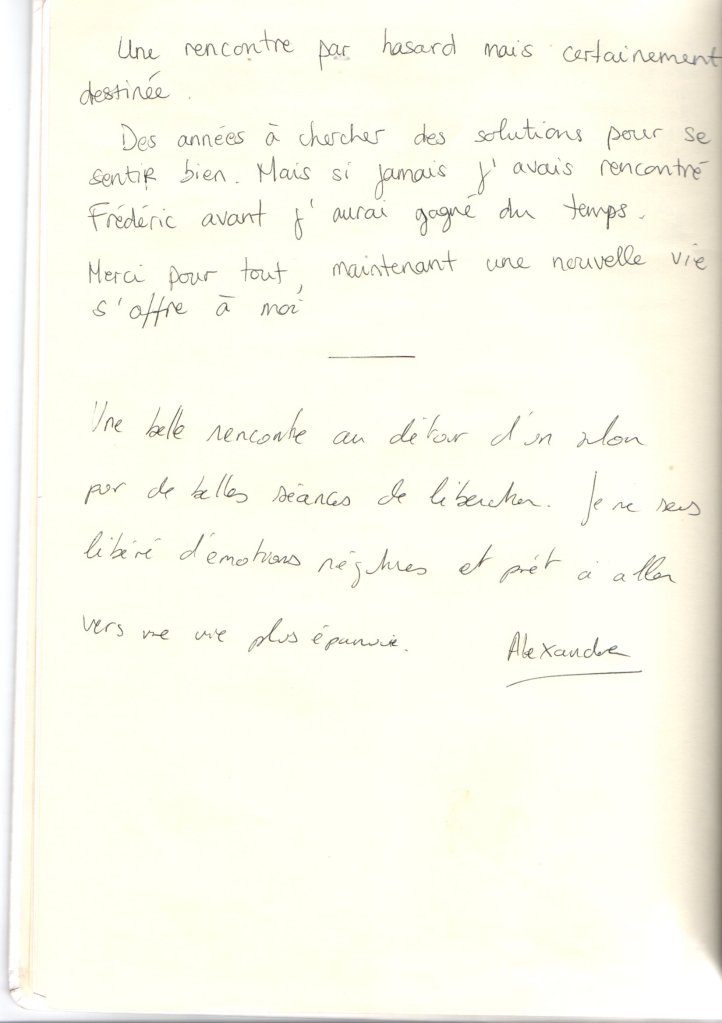 Une rencontre par hasard mais certainement
destinée.
Des années à chercher des solutions pour se
sentir bien. Mais si jamais j'avais rencontré
Frédéric avant j'aurai gagné du temps.
Merci pour tout, maintenant une nouvelle vie
s'offre à moi
Une belle rencontre au détour d'un salon
par de belles séances de libération. Je me sens
libéré d'émotions négatives et prêt à aller
vers une vie plus épanouie.
Alexandre